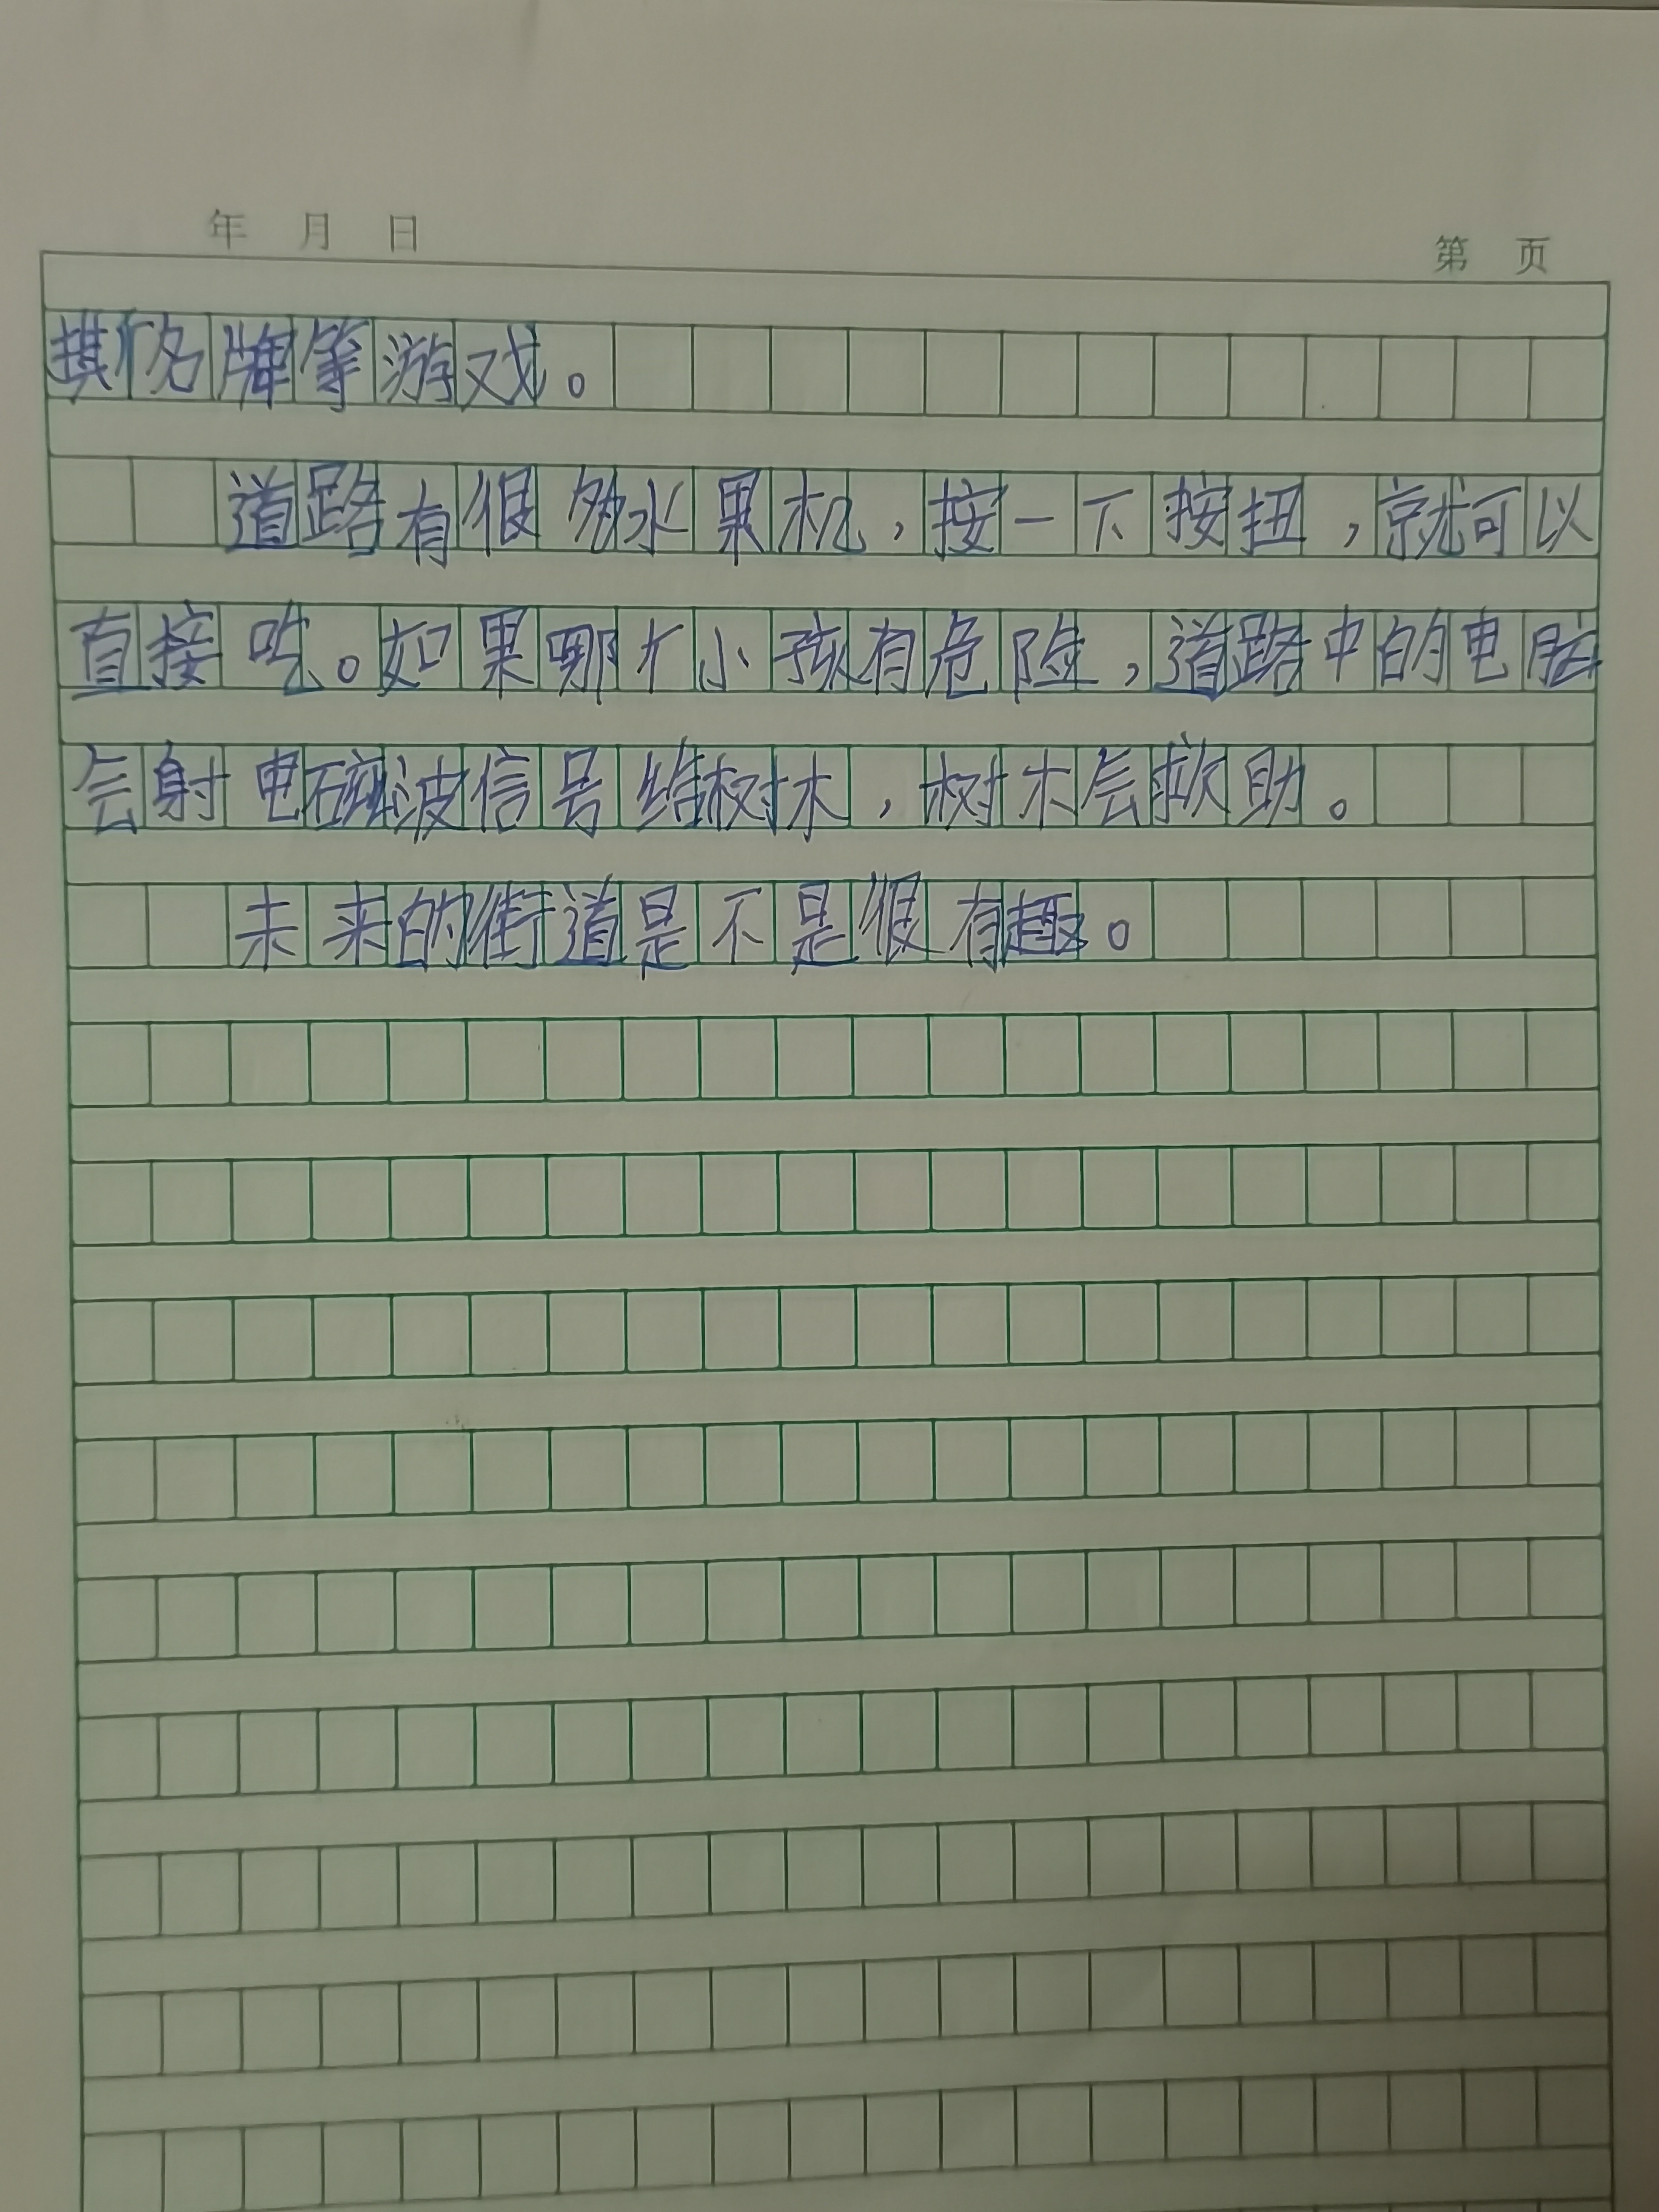 年 月 日
第 页
牌等游戏。
道路有很多水果机，按一下按扭，就可以
直接吃。如果哪个小孩有危险，道路中的电脑
会射电磁波信号给树木，树木会救助。
未来的街道是不是很有趣。